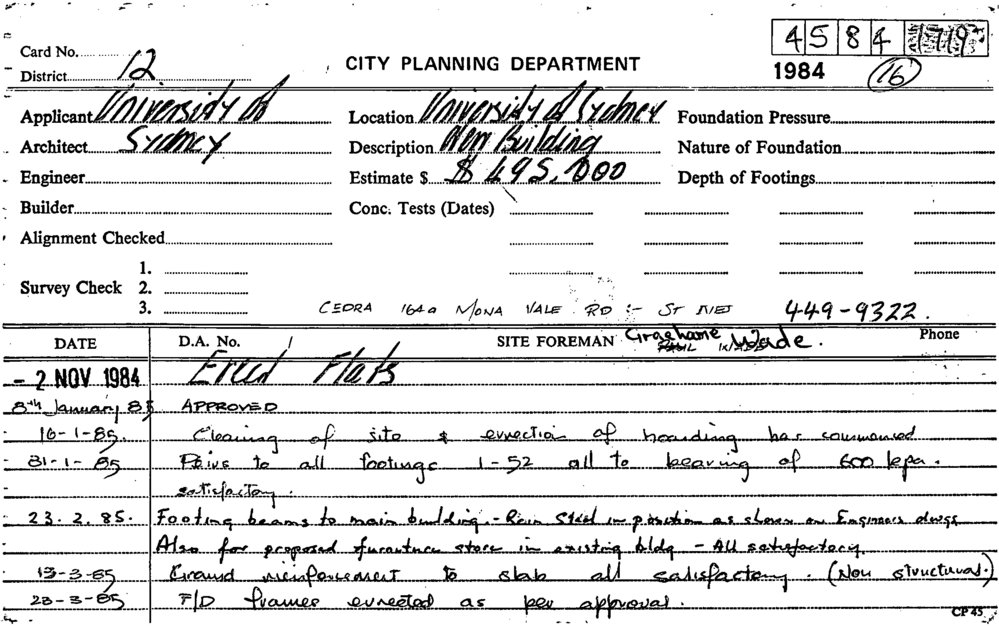 4584
1984
16
CITY PLANNING DEPARTMENT
Card No.
District 12
Applicant University of
Location University of Sydney
Foundation Pressure
Architect Sydney
Description New Building
Nature of Foundation
Engineer
Estimate $ $ 495,000
Depth of Footings
Builder
Conc. Tests (Dates)
Alignment Checked
Survey Check
1.
2.
3.
CEDRA 164a MONA VALE RD :- ST IVES 449-9322.
DATE
D.A. No.
SITE FOREMAN Graehame Wade.
Phone
- 2 NOV 1984 Erect Flats
8th January 85 APPROVED
16-1-85. Clearing of site & errection of hoarding has commenced
31-1-85 Peirs to all footings 1-52 all to bearing of 600 kpa.
satisfactory.
23.2.85. Footing beams to main building - Rein Steel in position as shown on Engineers dwgs
Also for proposed furniture store in existing bldg - All satisfactory.
13-3-85 Ground reinforcement to slab all satisfactory. (Non structural.)
23-3-85 F/D frames errected as per approval.
CP 45